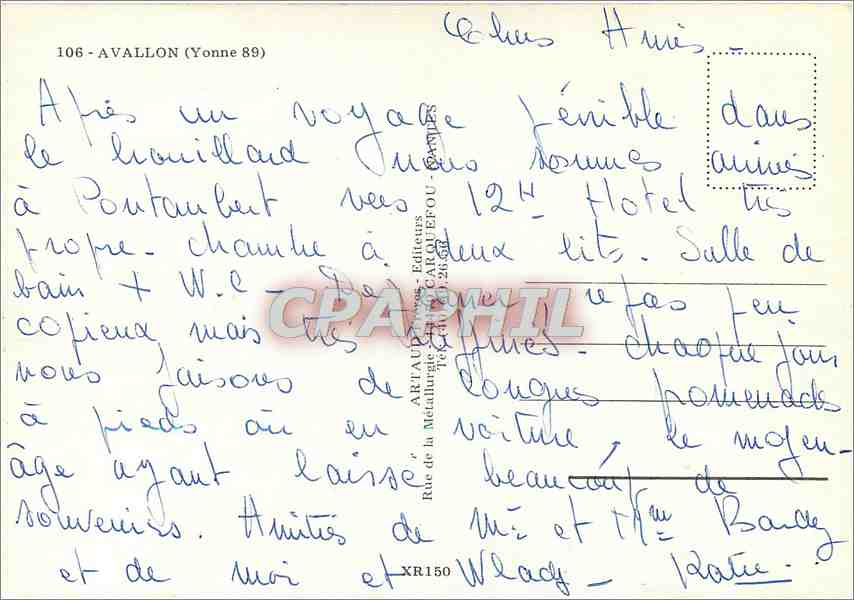 106 - AVALLON (Yonne 89)
Chers Amis -
Après un voyage pénible dans
le brouillard nous sommes arrivés
à Pontaubert vers 12H Hotel très
propre - chambre à deux lits. Salle de
bain + W.C - Déjeuner repas peu
copieux mais très raffinés. chaque jour
nous faisons de longues promenades
à pieds ou en voiture, le moyen-
âge ayant laissé beaucoup de
souvenirs. Amitiés de Mr et Mme Bardey
et de moi et Wlady - Katie.
ARTAUD Frères - Editeurs
Rue de la Métallurgie - CARQUEFOU - NANTES
Tél.
XR150
CPAPHIL